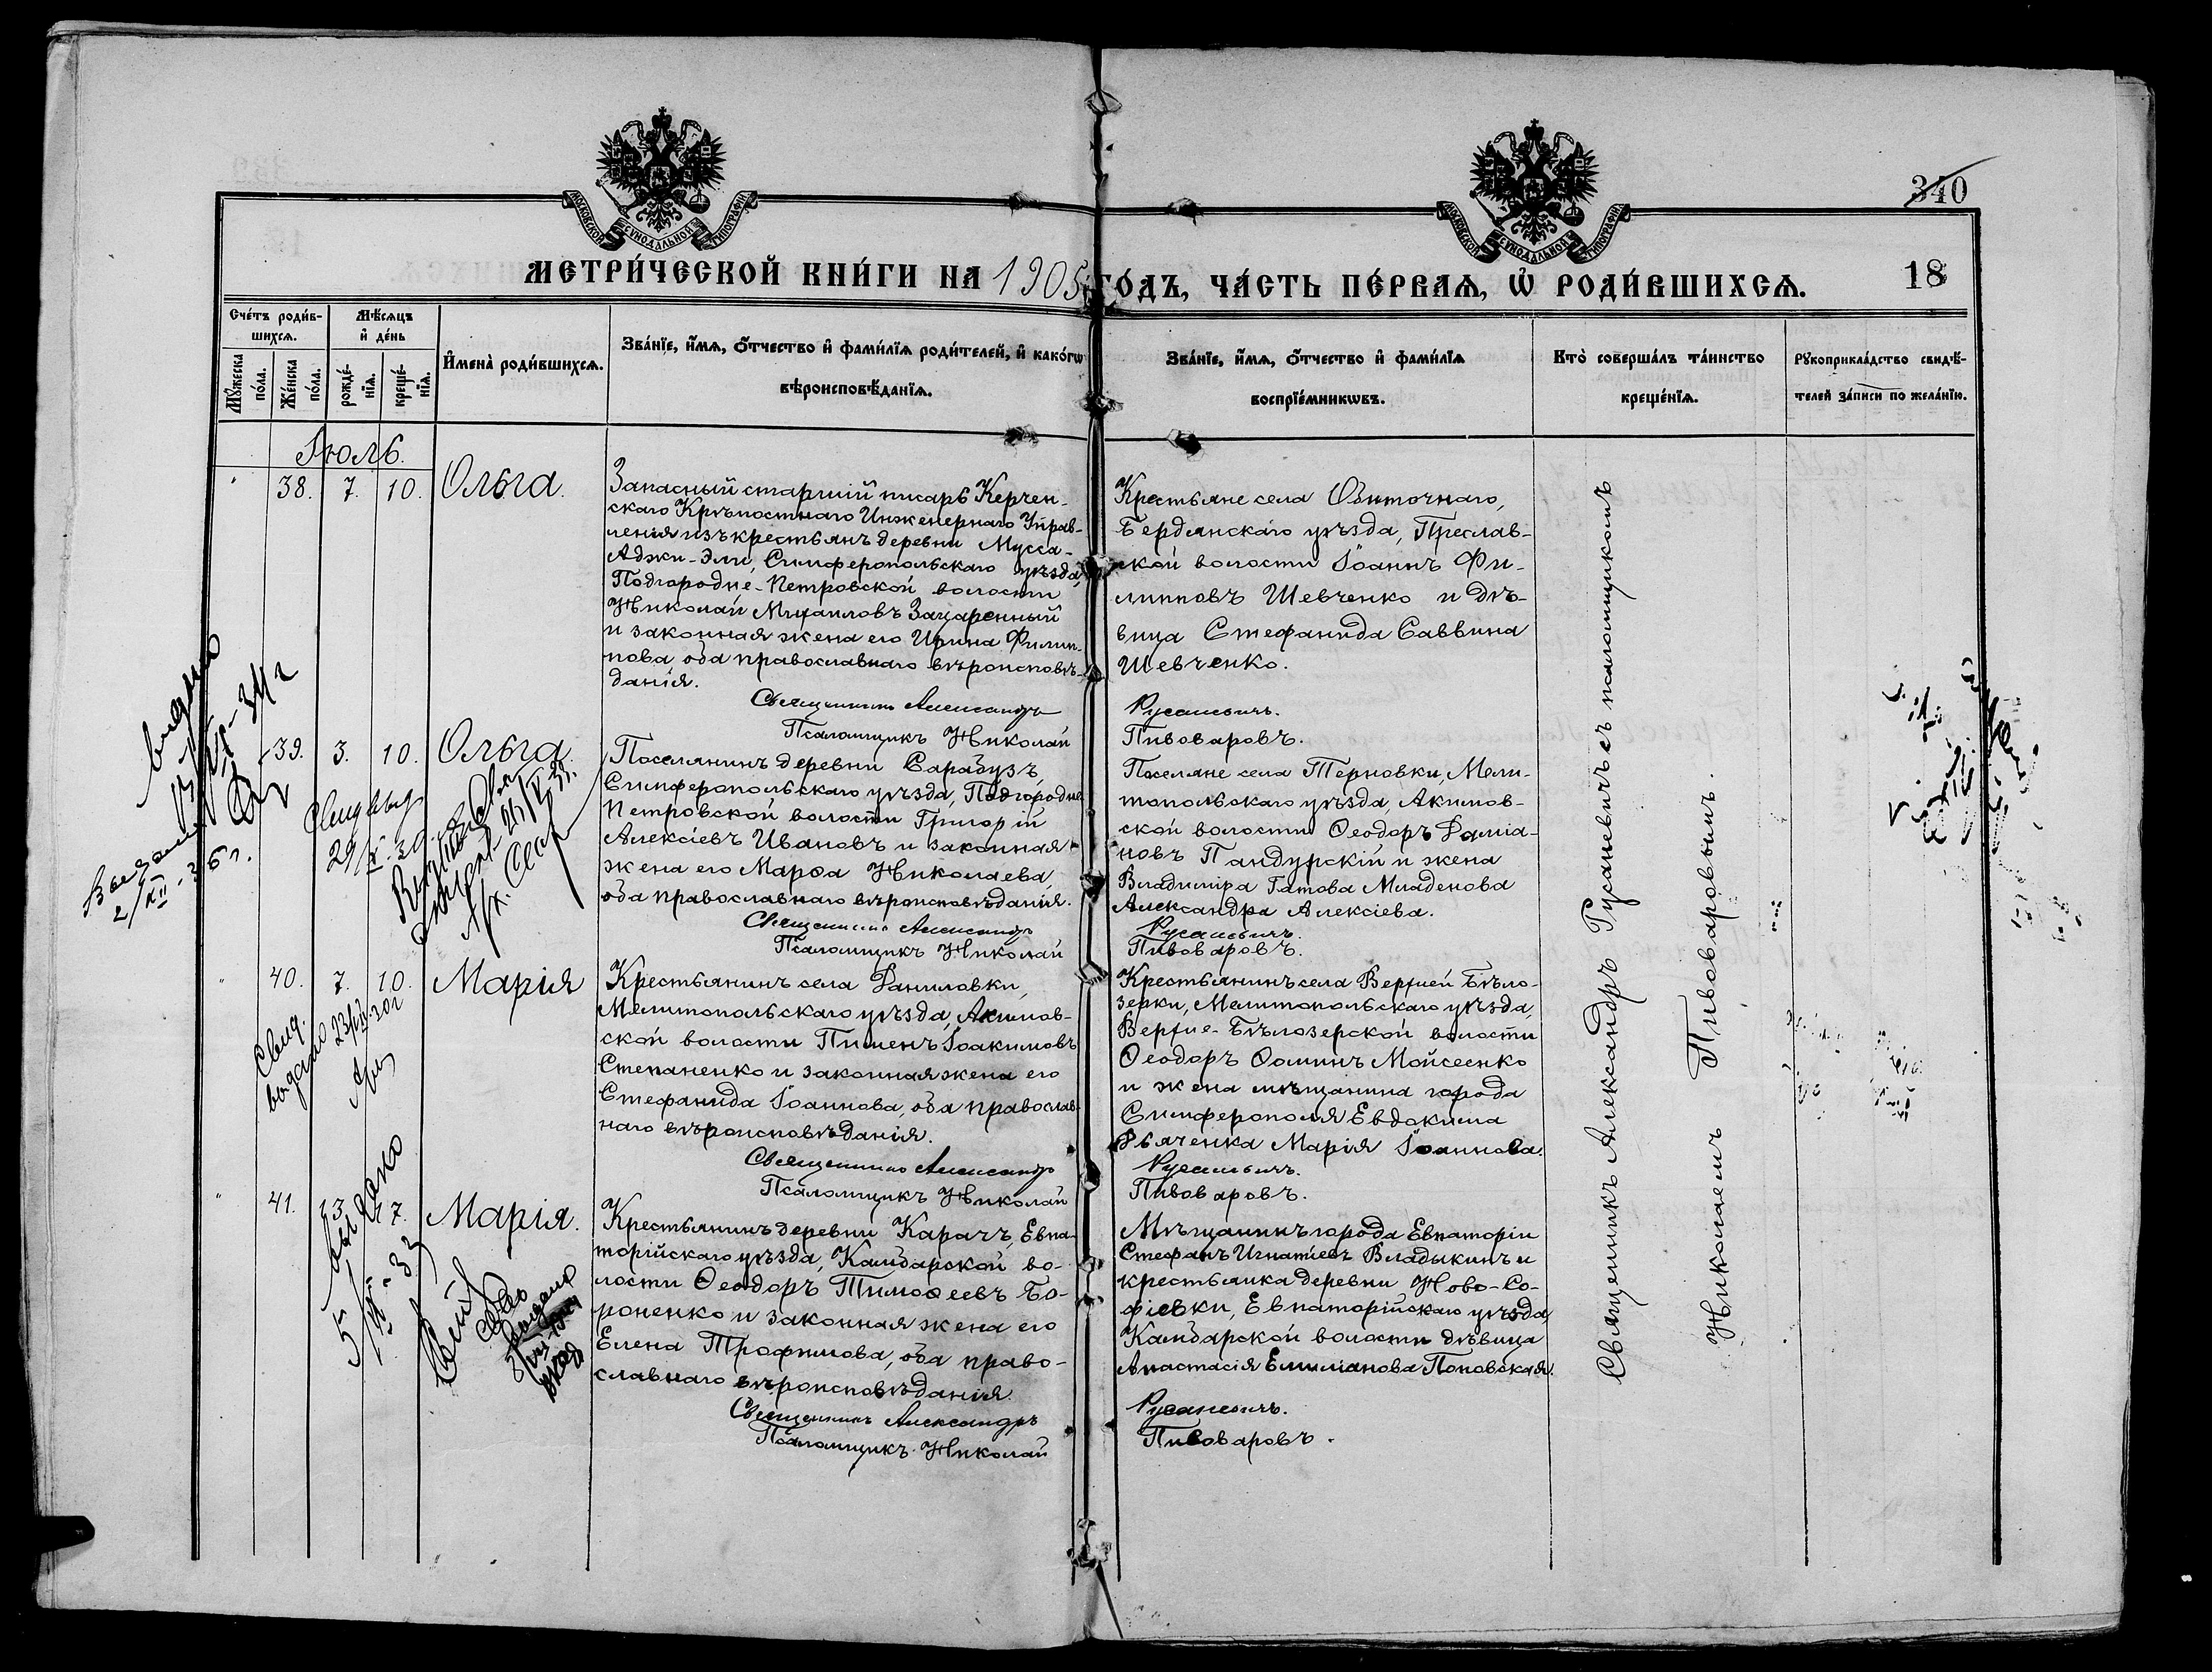 340
МОСКОВСКОЙ СѴНОДАЛЬНОЙ ТИПОГРАФІИ
МОСКОВСКОЙ СѴНОДАЛЬНОЙ ТИПОГРАФІИ
МЕТРИ́ЧЕСКОЙ КНИ́ГИ НА 1905 ГО́ДЪ, ЧА́СТЬ ПЕ́РВАѦ, Ѡ҆ РОДИ́ВШИХСѦ.
18
Сче́тъ роди́в-
шихсѧ.
Мꙋ́жеска по́ла.
Же́нска по́ла.
Мѣ́сѧцъ
и҆ де́нь
рожде́-
нїѧ.
креще́-
нїѧ.
И҆мена̀ роди́вшихсѧ.
Зва́нїе, и҆́мѧ, ѻ҆́тчество и҆ фами́лїѧ роди́телей, и҆ како́гѡ
вѣроисповѣ́данїѧ.
Зва́нїе, и҆́мѧ, ѻ҆́тчество и҆ фами́лїѧ
воспрїе́мникѡвъ.
Кто̀ соверша́лъ та́инство
креще́нїѧ.
Рꙋкоприкла́дство свидѣ́-
телей за́писи по жела́нїю.
Іюль.
38. 7. 10. Ольга.
Запасный старшій писарь Керчен-
скаго Крѣпостнаго Инженернаго Управ-
ленія изъ крестьянъ деревни Мусса-
Аджи-Эли, Симферопольскаго уѣзда,
Подгородне-Петровской волости
Николай Михаиловъ Захаренный
и законная жена его Ирина Филип-
пова, оба православнаго вѣроисповѣ-
данія.
Священникъ Александръ
Псаломщикъ Николай
Крестьяне села Обиточнаго,
Бердянскаго уѣзда, Преслав-
ской волости Іоаннъ Фи-
липповъ Шевченко и дѣ-
вица Стефанида Саввина
Шевченко.
Русаневичъ.
Пивоваровъ.
39. 3. 10. Ольга
Поселянинъ деревни Сарабузъ,
Симферопольскаго уѣзда, Подгородне
Петровской волости Григорій
Алексіевъ Ивановъ и законная
жена его Марѳа Николаева,
оба православнаго вѣроисповѣданія.
Священникъ Александръ
Псаломщикъ Николай
Поселяне села Терновки, Мели-
топольскаго уѣзда, Акимов-
ской волости Ѳеодоръ Даміа-
новъ Пандурскій и жена
Владиміра Гатова Младенова
Александра Алексіева.
Русаневичъ.
Пивоваровъ.
40. 7. 10. Марія
Крестьянинъ села Даниловки,
Мелитопольскаго уѣзда, Акимов-
ской волости Пименъ Іоакимовъ
Степаненко и законная жена его
Стефанида Іоаннова, оба православ-
наго вѣроисповѣданія.
Священникъ Александръ
Псаломщикъ Николай
Крестьянинъ села Верхней Бѣло-
зерки, Мелитопольскаго уѣзда,
Верхне-Бѣлозерской волости
Ѳеодоръ Ѳоминъ Мойсеенко
и жена мѣщанина города
Симферополя Евдокима
Дьяченка Марія Іоаннова.
Русаневичъ.
Пивоваровъ.
41. 13. 17. Марія.
Крестьянинъ деревни Карачъ, Евпа-
торійскаго уѣзда, Камбарской во-
лости Ѳеодоръ Тимоѳеевъ Бо-
роненко и законная жена его
Елена Трофимова, оба право-
славнаго вѣроисповѣданія.
Священникъ Александръ
Псаломщикъ Николай
Мѣщанинъ города Евпаторіи
Стефанъ Игнатіевъ Владыкинъ и
крестьянка деревни Ново-Со-
фіевки, Евпаторійскаго уѣзда,
Камбарской волости дѣвица
Анастасія Емиліанова Поповская.
Русаневичъ.
Пивоваровъ.
Священникъ Александръ Русаневичъ съ псаломщикомъ
Николаемъ Пивоваровымъ.
Свид.
выдано